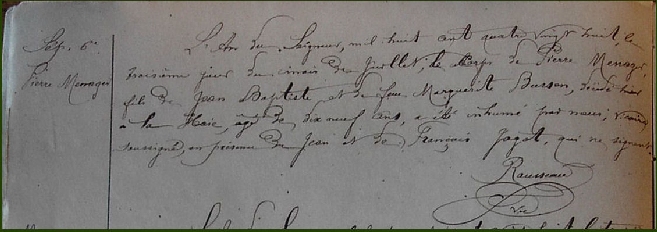 Sep. 6e
Pierre Menager
L'An du Seigneur, mil huit cent quatre vingt huit, le
troisième jour du mois de Juillet, le corps de Pierre Menager,
fils de Jean Baptiste et de feue Marguerit Busson, décédé hier
à la Haie, âgé de dix neuf ans, a été inhumé par nous, vicaire
soussigné, en présence de Jean et de François Jagot, qui ne signent
Rousseau
Vre